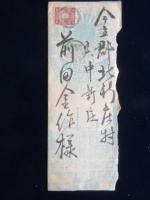 今立郡北新庄村
北中新庄
前田金作様